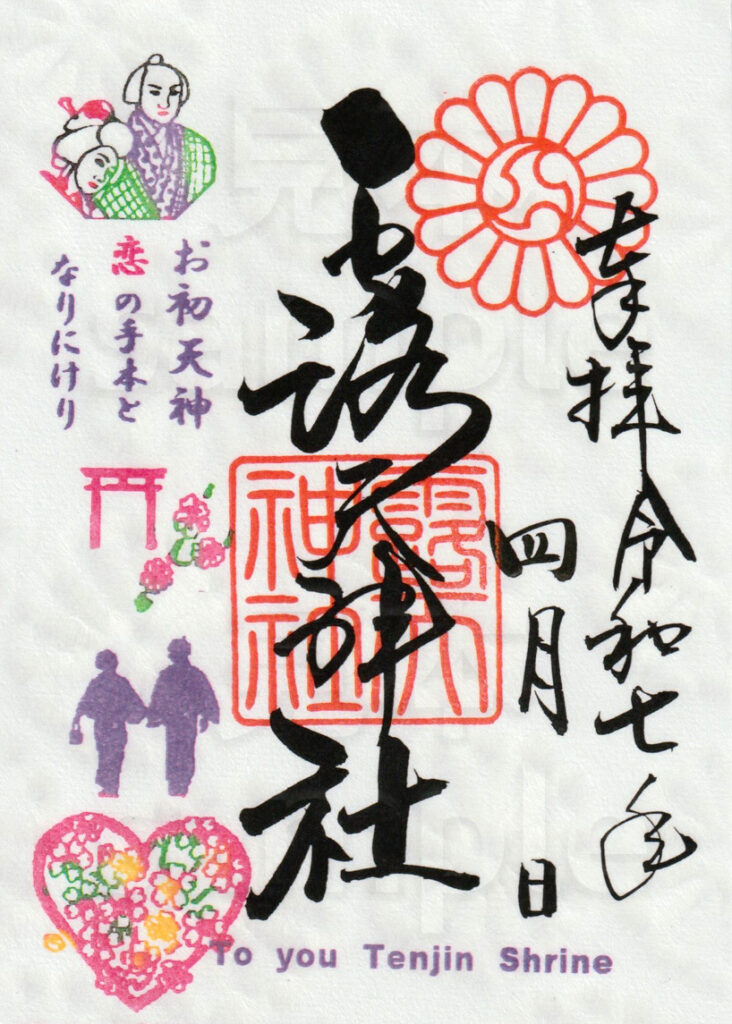 奉拝 令和七年
四月 日
露天神社
露天
神社
お初天神
恋の手本と
なりにけり
To you Tenjin Shrine
見本
sample
見本
sample